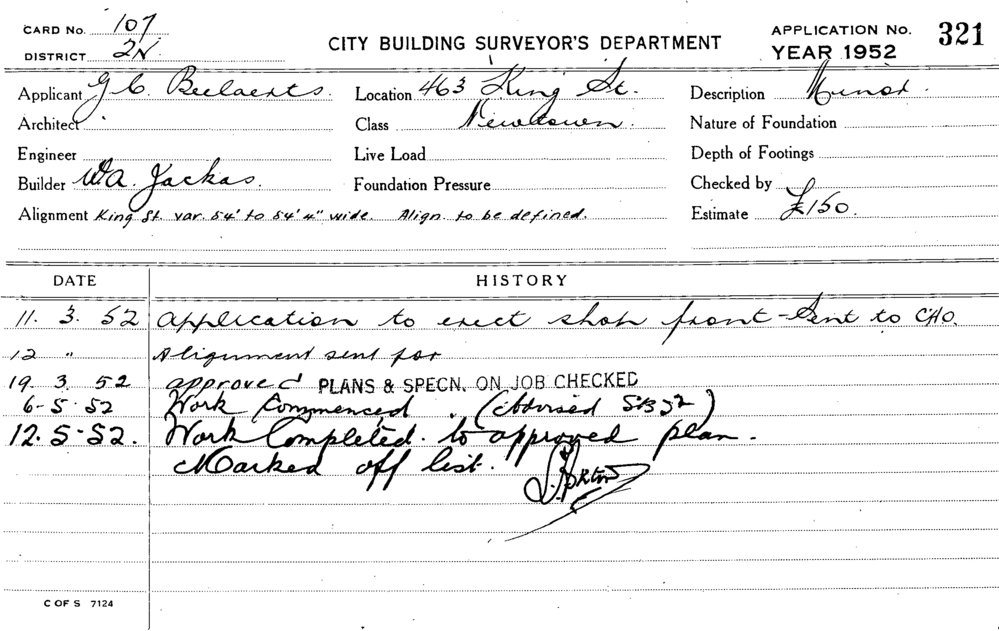 CARD No. 107
DISTRICT 2N
CITY BUILDING SURVEYOR'S DEPARTMENT
APPLICATION No. 321
YEAR 1952
Applicant G.C. Beelaerts. Location 463 King St. Description Minor.
Architect Class Newtown. Nature of Foundation
Engineer Live Load Depth of Footings
Builder W.A. Jackas. Foundation Pressure Checked by
Alignment King St. var. 54' to 54' 4" wide. Align. to be defined. Estimate £150.
DATE HISTORY
11. 3. 52 Application to erect shop front - Sent to CHO.
12 " Alignment sent for
19. 3. 52 approved PLANS & SPECN. ON JOB CHECKED
6-5-52 Work Commenced. (Advised
12.5.52. Work Completed. to approved plan.
Marked off list.
C OF S 7124